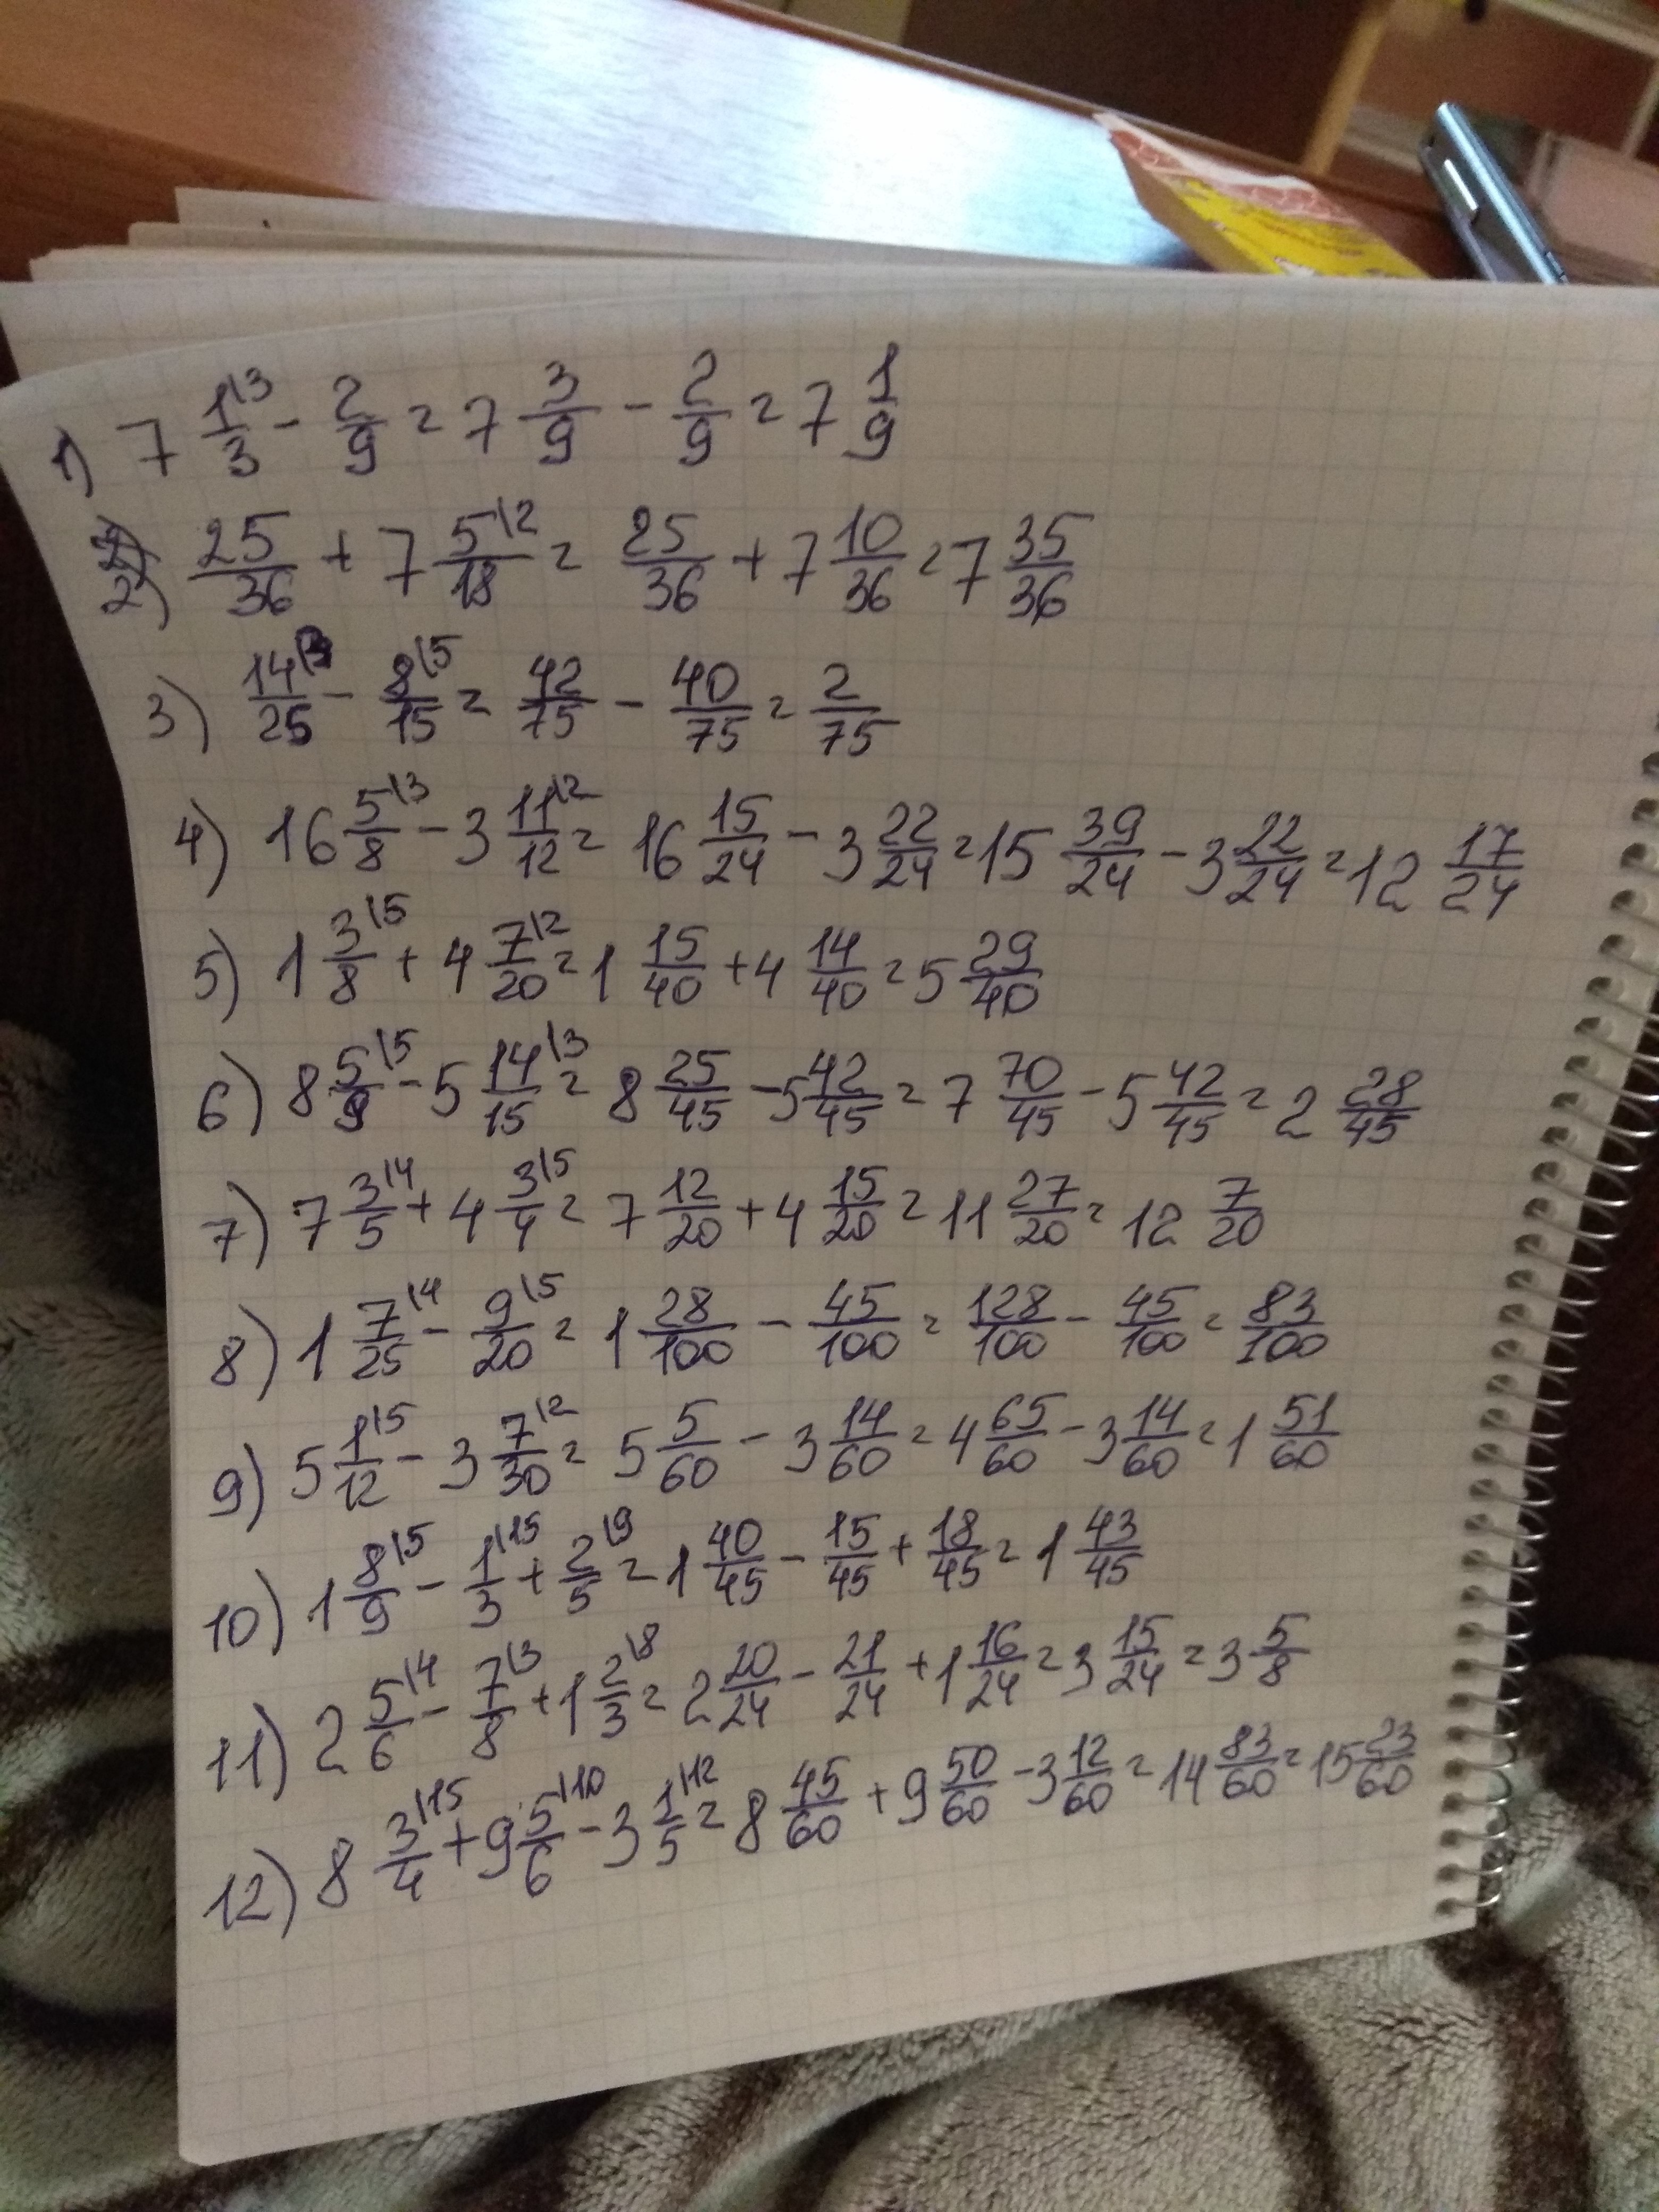 1) 7 1\3/3 - 2/9 = 7 3/9 - 2/9 = 7 1/9
2) 25/36 + 7 5\2/18 = 25/36 + 7 10/36 = 7 35/36
3) 14\3/25 - 8\5/15 = 42/75 - 40/75 = 2/75
4) 16 5\3/8 - 3 11\2/12 = 16 15/24 - 3 22/24 = 15 39/24 - 3 22/24 = 12 17/24
5) 1 3\5/8 + 4 7\2/20 = 1 15/40 + 4 14/40 = 5 29/40
6) 8 5\5/9 - 5 14\3/15 = 8 25/45 - 5 42/45 = 7 70/45 - 5 42/45 = 2 28/45
7) 7 3\4/5 + 4 3\5/4 = 7 12/20 + 4 15/20 = 11 27/20 = 12 7/20
8) 1 7\4/25 - 9\5/20 = 1 28/100 - 45/100 = 128/100 - 45/100 = 83/100
9) 5 1\5/12 - 3 7\2/30 = 5 5/60 - 3 14/60 = 4 65/60 - 3 14/60 = 1 51/60
10) 1 8\5/9 - 1\15/3 + 2\9/5 = 1 40/45 - 15/45 + 18/45 = 1 43/45
11) 2 5\4/6 - 7\3/8 + 1 2\8/3 = 2 20/24 - 21/24 + 1 16/24 = 3 15/24 = 3 5/8
12) 8 3\15/4 + 9 5\10/6 - 3 1\12/5 = 8 45/60 + 9 50/60 - 3 12/60 = 14 83/60 = 15 23/60